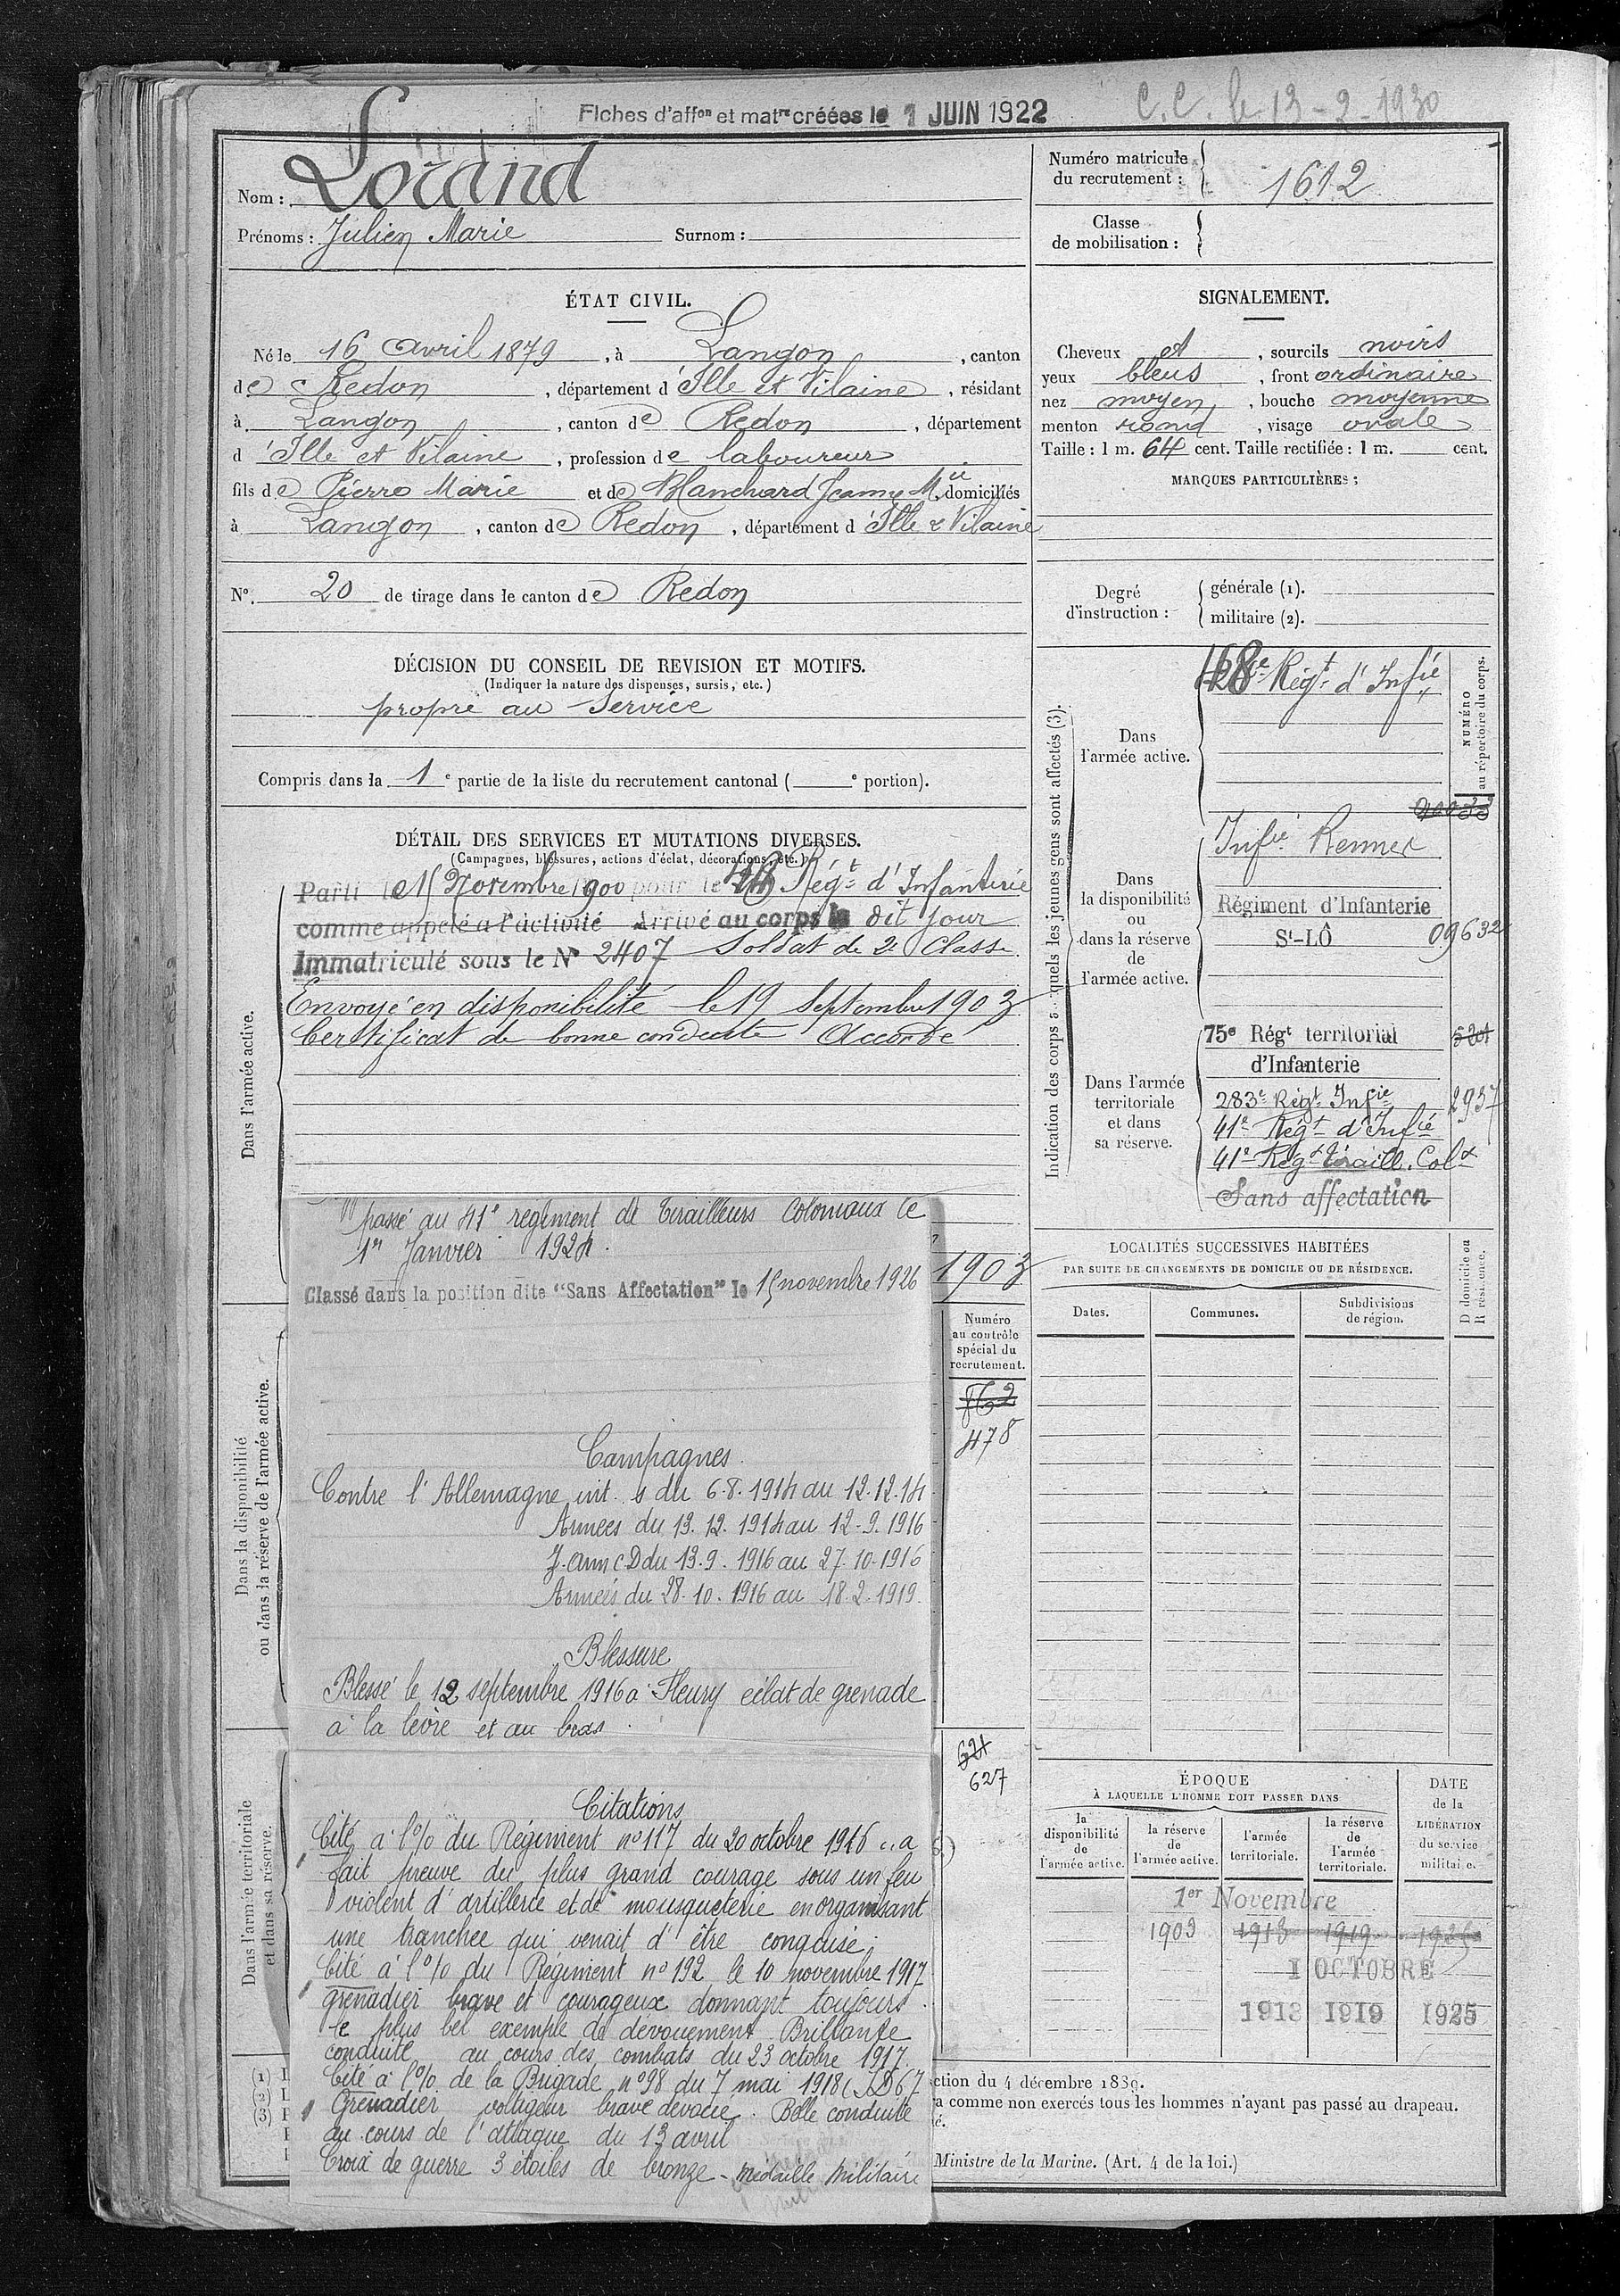 Fiches d'affon et matre créées le 1 JUIN 1922
C.C. le 13-2-1930
Nom : Lorand
Prénoms : Julien Marie Surnom :
Numéro matricule du recrutement : 1612
Classe de mobilisation :
ÉTAT CIVIL.
Né le 16 Avril 1879, à Langon, canton
de Redon, département d'Ille et Vilaine, résidant
à Langon, canton de Redon, département
d'Ille et Vilaine, profession de laboureur
fils de Pierre Marie et de Blanchard Jeanne Mie domiciliés
à Langon, canton de Redon, département d'Ille & Vilaine
No. 20 de tirage dans le canton de Redon
SIGNALEMENT.
Cheveux et, sourcils noirs
yeux bleus, front ordinaire
nez moyen, bouche moyenne
menton rond, visage ovale
Taille : 1 m. 64 cent. Taille rectifiée : 1 m. cent.
MARQUES PARTICULIÈRES :
Degré d'instruction :
générale (1).
militaire (2).
DÉCISION DU CONSEIL DE REVISION ET MOTIFS.
(Indiquer la nature des dispenses, sursis, etc.)
propre au service
Compris dans la 1e partie de la liste du recrutement cantonal ( e portion).
DÉTAIL DES SERVICES ET MUTATIONS DIVERSES.
(Campagnes, blessures, actions d'éclat, décorations, etc.)
Dans l'armée active.
Parti le 15 Novembre 1900 pour le Régt d'Infanterie
comme appelé à l'activité Arrivé au corps le dit jour
Immatriculé sous le No 2407 Soldat de 2e Classe
Envoyé en disponibilité le 19 Septembre 1903
Certificat de bonne conduite Accordé
passé au 41e régiment de Tirailleurs Coloniaux le
1er Janvier 1924.
Classé dans la position dite "Sans Affectation" le 15 novembre 1926
1903
Dans la disponibilité
ou dans la réserve de l'armée active.
Numéro
au contrôle
spécial du
recrutement.
478
Campagnes.
Contre l'Allemagne int. s du 6.8.1914 au 12.12.14
Armées du 13.12.1914 au 12.9.1916
J. arm CD du 13.9.1916 au 27.10.1916
Armées du 28.10.1916 au 18.2.1919.
Blessure
Blessé le 12 septembre 1916 à Fleury éclat de grenade
à la lèvre et au bras.
Dans l'armée territoriale
et dans sa réserve.
621
627
Citations
Cité à l'o/o du Régiment no 117 du 20 octobre 1916 "a
fait preuve du plus grand courage sous un feu
violent d'artillerie et de mousqueterie en organisant
une tranchée qui venait d'être conquise.
Cité à l'o/o du Régiment no 192 le 10 novembre 1917
grenadier brave et courageux donnant toujours
le plus bel exemple de dévouement Brillante
conduite au cours des combats du 23 octobre 1917.
Cité à l'o/o de la Brigade no 98 du 7 mai 1918 (JD67
Grenadier voltigeur brave dévoué. Belle conduite
au cours de l'attaque du 13 avril
Croix de guerre 3 étoiles de bronze - médaille Militaire
(1)
(2)
(3)
ction du 4 décembre 1889.
a comme non exercés tous les hommes n'ayant pas passé au drapeau.
é.
Ministre de la Marine. (Art. 4 de la loi.)
Indication des corps auxquels les jeunes gens sont affectés (3).
NUMÉRO
au répertoire du corps.
Dans
l'armée active.
Régt d'Infie
Dans
la disponibilité
ou
dans la réserve
de
l'armée active.
Infie Rennes
Régiment d'Infanterie
St-LÔ 09632
Dans l'armée
territoriale
et dans
sa réserve.
75e Régt territorial
d'Infanterie
283e Régt Infie 2937
41e Régt d'Infie
41e Régt Tiraill. Colx
Sans affectation
LOCALITÉS SUCCESSIVES HABITÉES
PAR SUITE DE CHANGEMENTS DE DOMICILE OU DE RÉSIDENCE.
Dates. Communes. Subdivisions de région.
D domicile ou
R résidence.
ÉPOQUE
À LAQUELLE L'HOMME DOIT PASSER DANS
la disponibilité de l'armée active.
la réserve de l'armée active.
l'armée territoriale.
la réserve de l'armée territoriale.
DATE
de la
LIBÉRATION
du service
militaire.
1er Novembre
1903 1913 1919 1925
1 OCTOBRE
1913 1919 1925